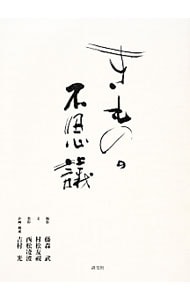 きもの
不思議
藤森 武
文
村松友視
西松凌波
吉村 光